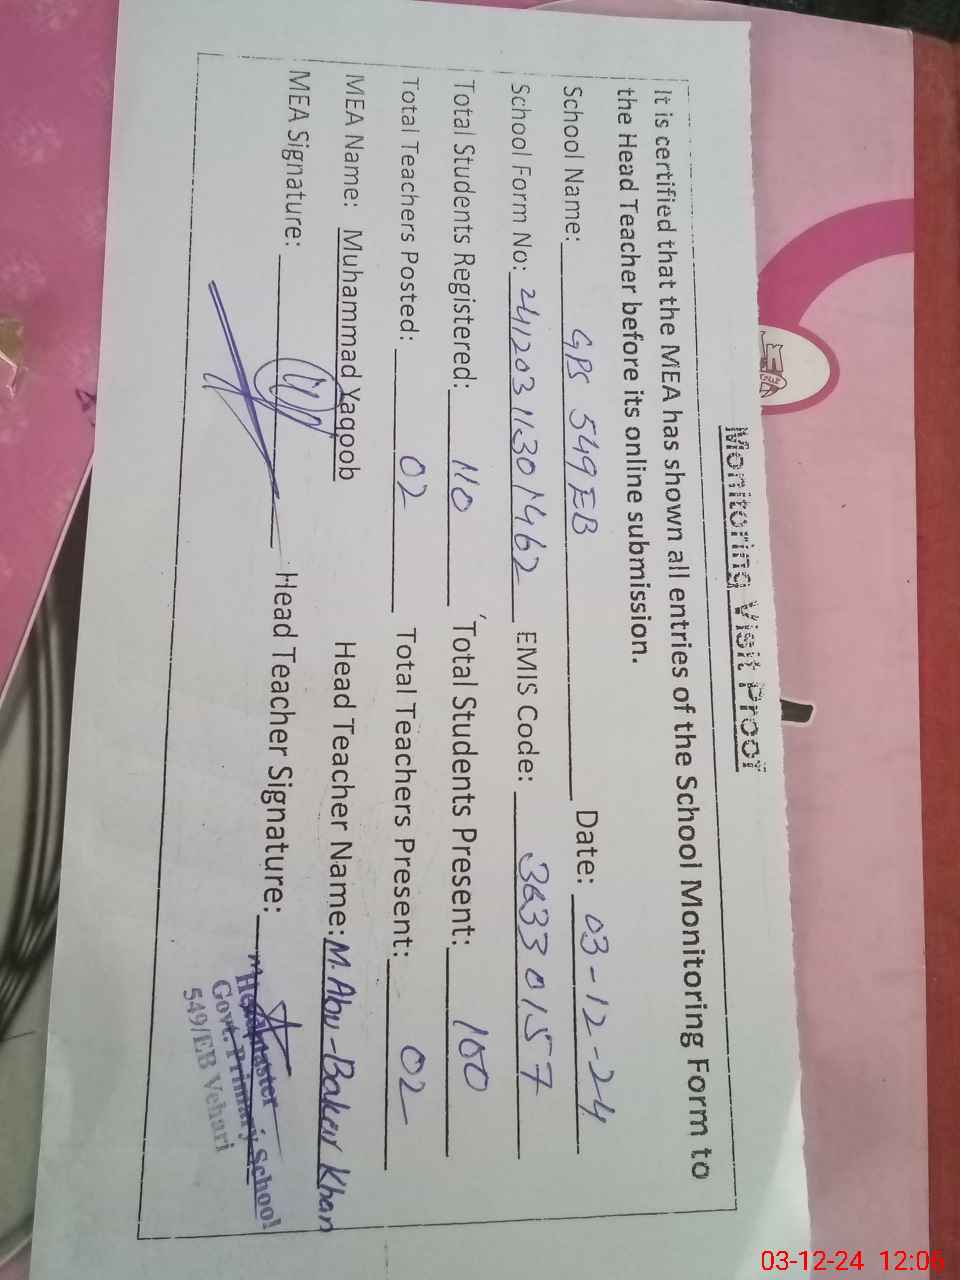 Monitoring Visit Proof
It is certified that the MEA has shown all entries of the School Monitoring Form to
the Head Teacher before its online submission.
School Name: GPS 549EB Date: 03-12-24
School Form No: 24120311301462 EMIS Code: 36330157
Total Students Registered: 110 Total Students Present: 100
Total Teachers Posted: 02 Total Teachers Present: 02
MEA Name: Muhammad Yaqoob Head Teacher Name: M. Abu-Bakar Khan
MEA Signature: Head Teacher Signature:
Headmaster
Govt. Primary School
549/EB Vehari
03-12-24 12:06